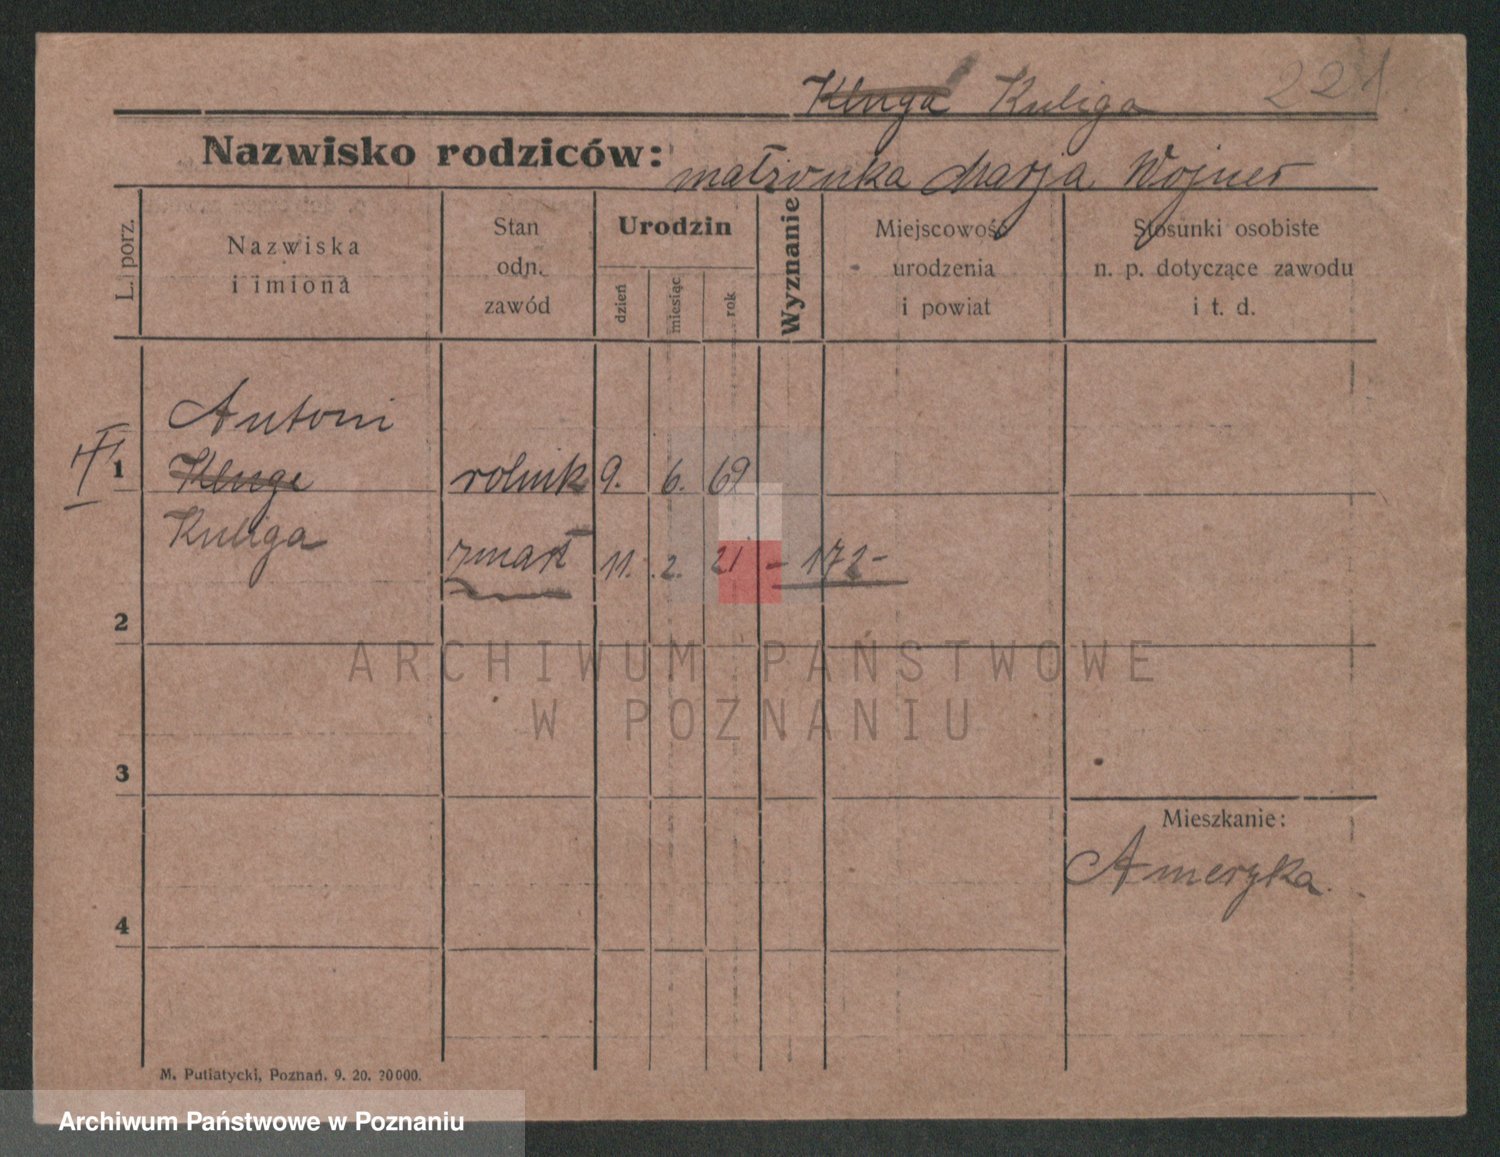 Kluga Kuliga 221
Nazwisko rodziców: małżonka Marja Wojner
L. porz.
Nazwiska
i imiona
Stan
odn.
zawód
Urodzin
dzień
miesiąc
rok
Wyznanie
Miejscowość
urodzenia
i powiat
Stosunki osobiste
n. p. dotyczące zawodu
i t. d.
Antoni
1 Kluge rolnik 9. 6. 69
Kuliga
zmarł 11. 2. 21 - 172 -
2
ARCHIWUM PAŃSTWOWE
W POZNANIU
3
Mieszkanie:
Ameryka.
4
M. Putiatycki, Poznań. 9. 20. 20000.
Archiwum Państwowe w Poznaniu